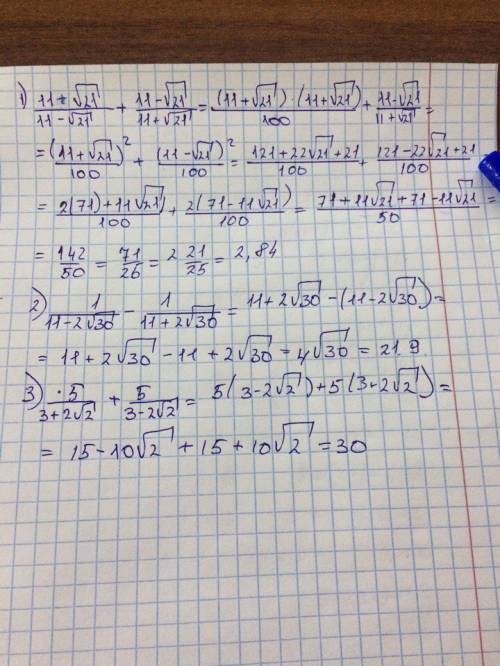 1) (11+√21)/(11-√21) + (11-√21)/(11+√21) = ((11+√21)·(11+√21))/100 + (11-√21)/(11+√21) =
= (11+√21)²/100 + (11-√21)²/100 = (121+22√21+21)/100 + (121-22√21+21)/100
= (2(71)+11√21)/100 + (2(71-11√21))/100 = (71+11√21+71-11√21)/50 =
= 142/50 = 71/26 = 2 21/25 = 2,84
2) 1/(11-2√30) - 1/(11+2√30) = 11+2√30-(11-2√30) =
= 11+2√30-11+2√30 = 4√30 = 21.9.
3) ·5/(3+2√2) + 5/(3-2√2) = 5(3-2√2)+5(3+2√2) =
= 15-10√2+15+10√2 = 30